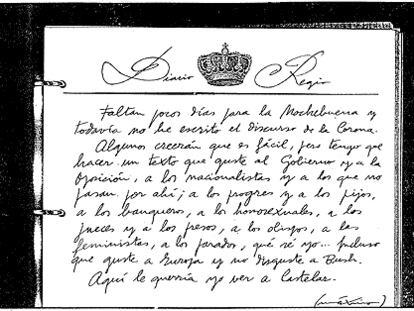 Diario Regio
Faltan pocos días para la Nochebuena y
todavía no he escrito el discurso de la Corona.
Algunos creerán que es fácil, pero tengo que
hacer un texto que guste al Gobierno y a la
oposición, a los nacionalistas y a los que no
pasan por ahí; a los progres y a los pijos,
a los banqueros, a los homosexuales, a los
jueces y a los presos, a los obispos, a las
feministas, a los parados, qué sé yo... Incluso
que guste a Europa y no disguste a Bush.
Aquí le querría yo ver a Castelar.
(máximo)